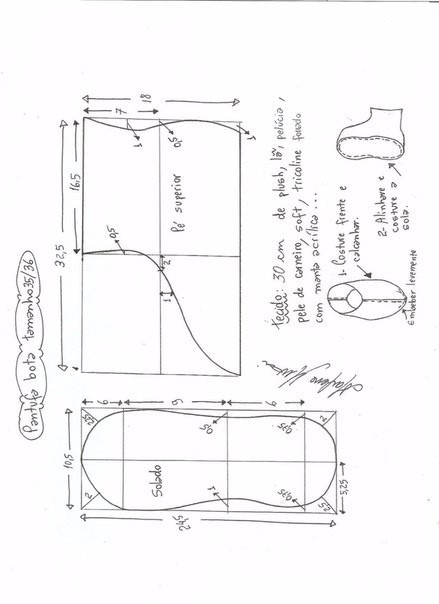 Pantufa bota tamanho 35/36
18
7
1
0,5
1
16,5
32,5
0,5
2
1
Pé superior
tecido: 30 cm de plush, lã, pelúcia,
pele de carneiro, soft, tricoline forrado
com manta acrílica...
1- Costure frente e
calcanhar.
2- Alinhave e
costure a
sola.
Embeber levemente
6
9
6
10,5
2,5
2
0,5
0,25
2
Solado
1
0,25
2,5
5,25
24,5